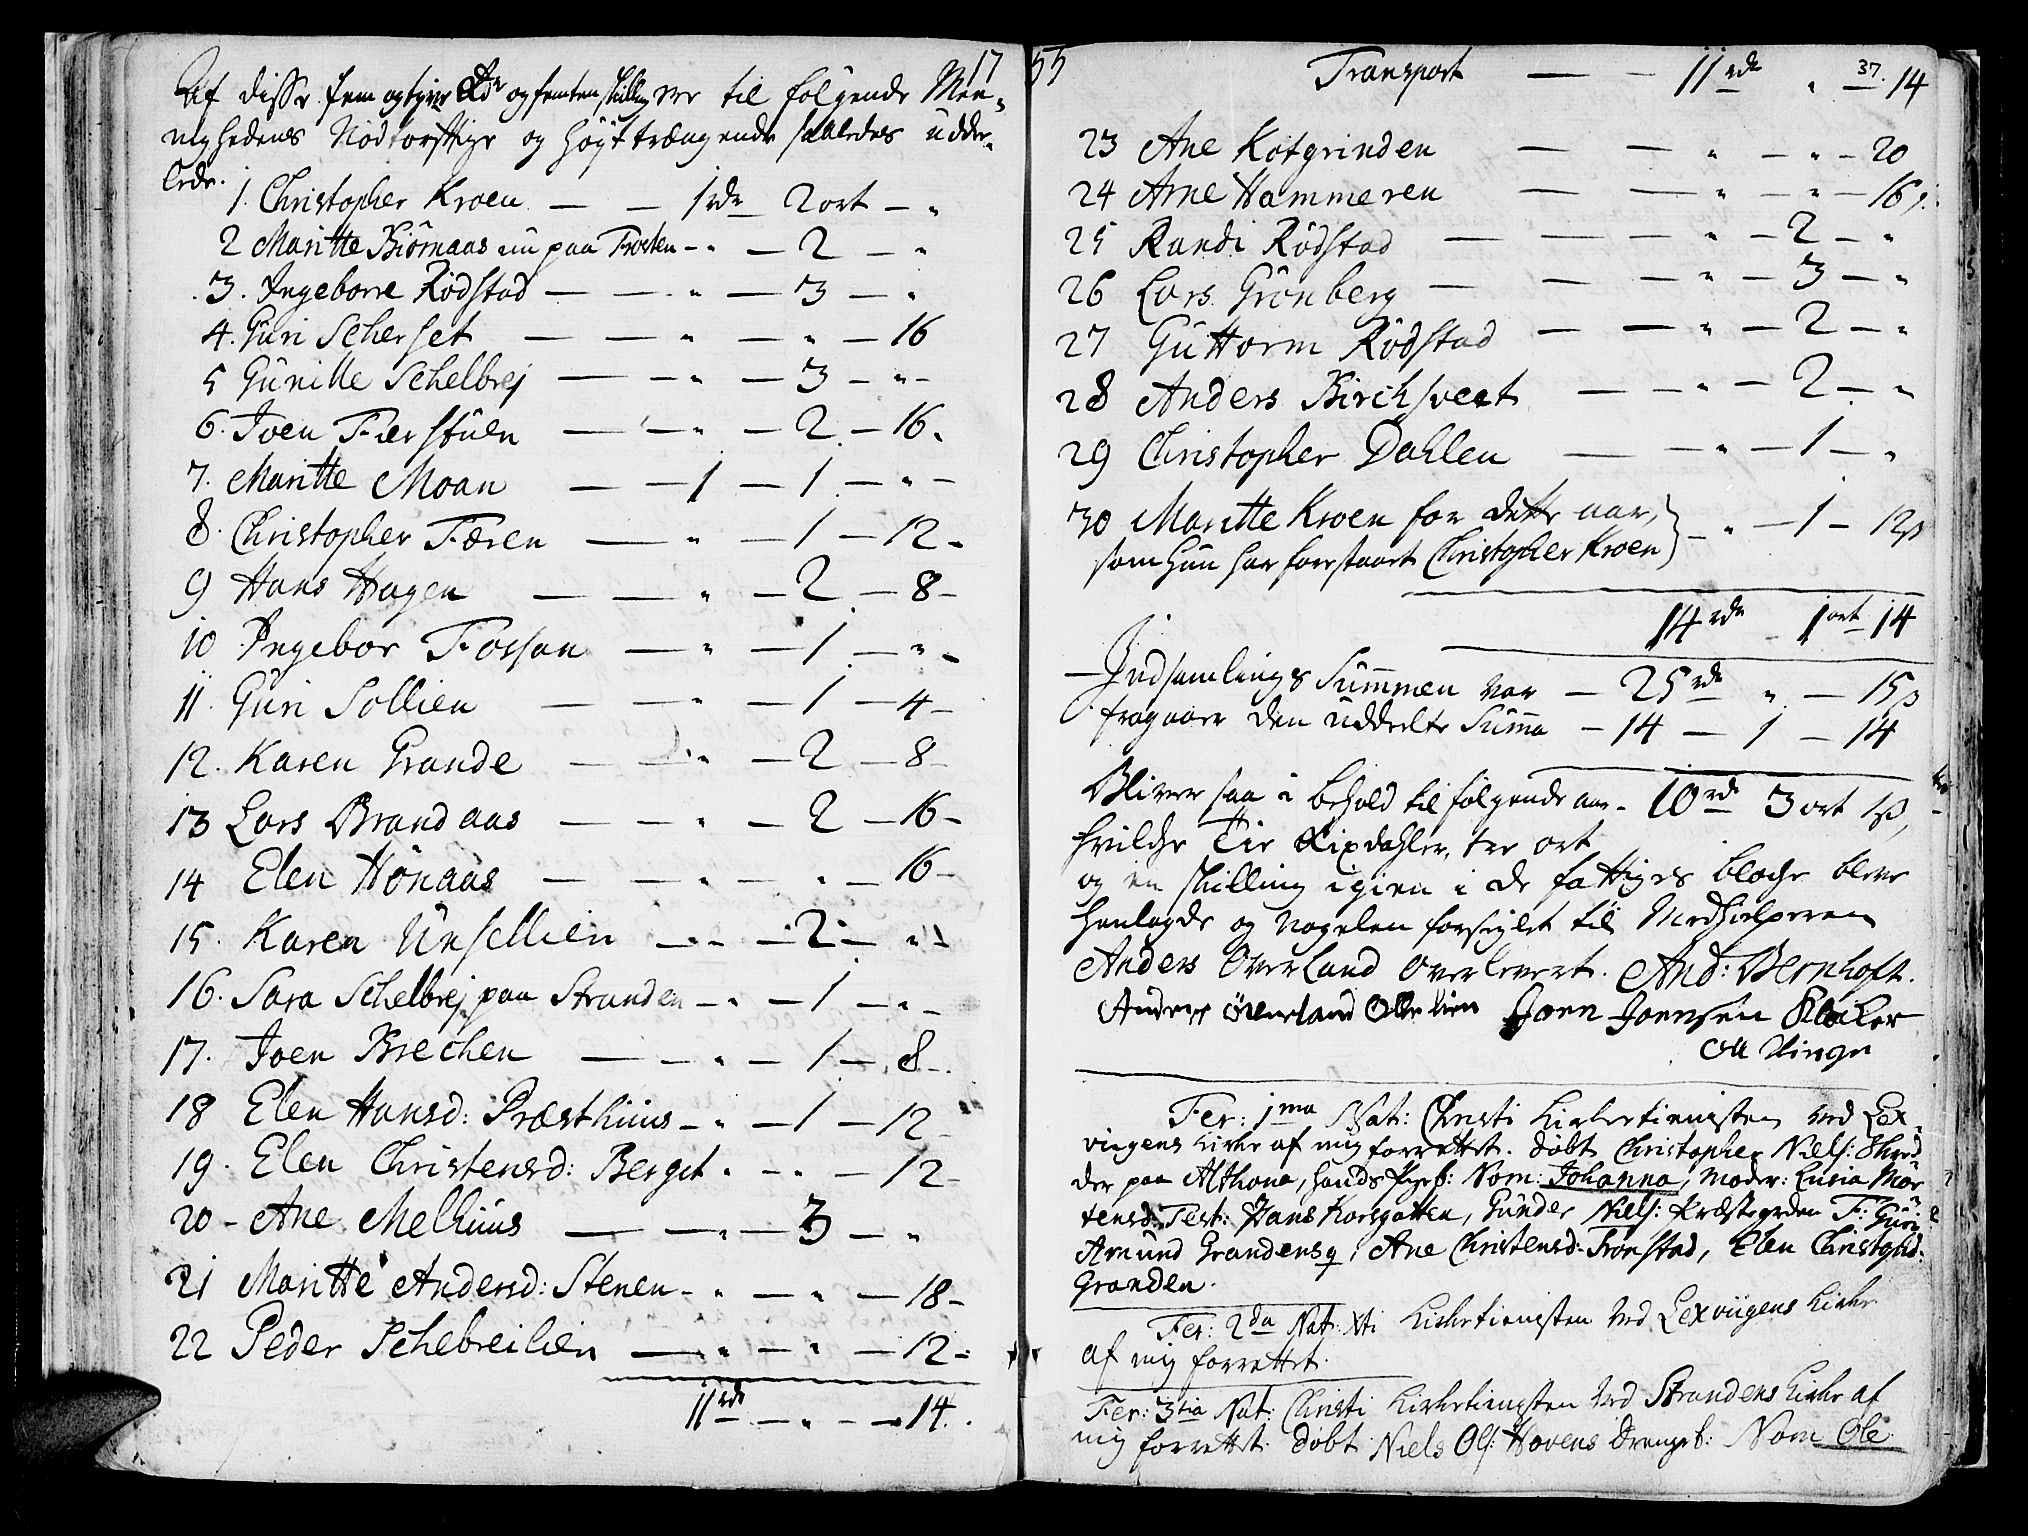 17
Af disse fem og tyve Rdr og femten skilling ere til følgende Men-
nighedens Nødtørftige og høyt trængende saaledes uddee-
lede.
1. Christopher Kroen — — 1 rdr — 2 ort — „
2 Maritte Biörnaas nu paa Trosten — „ — 2 — „
3. Ingeborre Rödstad — — „ — 3 — „
4. Guri Scherset — — „ — „ — 16
5 Gunille Schelbrej — — „ — 3 — „ —
6. Joen Fierstuen — — „ — 2 — 16.
7. Maritte Moan — — 1 — 1 — „ —
8. Christopher Færen — „ — 1 — 12 —
9 Hans Hagen — — „ — 2 — 8 —
10 Ingebor Fossan — „ — 1 — „ —
11. Guri Sollien — — „ — 1 — 4 —
12. Karen Grande — — „ — 2 — 8 —
13 Lars Brandaas — — „ — 2 — 16 —
14 Elen Hönaas — — „ — „ — 16 —
15. Karen Unsellien — „ — 2 — „
16. Sara Schelbrej paa Stranden — „ — 1 — „
17. Joen Brechen — — „ — 1 — 8 —
18 Elen Hansd: Præsthuus — „ — 1 — 12 —
19. Elen Christensd: Berget „ — „ — 12 —
20 — Ane Melhuus — — „ — 3 — „
21 Maritte Andersd: Stenen — „ — „ — 18 —
22 Peder Schebreilien — „ — „ — 12 —
11 rdr — „ — 14.
55
37.
Transport — — 11 rdr „ — 14
23 Ane Kotgrinden — — „ — „ — 20
24 Arne Hammeren — — „ — „ — 16 ß.
25 Randi Rödstad — — „ — 2 — „
26 Lars Grönberg — — „ — 3 — „
27 Guttorm Rödstad — — „ — 2 — „
28 Anders Birchsveet — — „ — 2 — „
29 Christopher Dahlen — — „ — 1 — „
30 Maritte Kroen for dette aar, — „ — 1 — 12 ß
som hun har forestaaet Christopher Kroen
14 rdr 1 ort 14
Indsamlings Summen var — 25 rdr „ — 15 ß
fragaaer den uddeelte Summa — 14 — 1 — 14
Bliver saa i behold til følgende aar — 10 rdr 3 ort 1 ß,
hvilche Tie Rixdahler, tre ort
og en skilling igien i de fattiges bloche bleve
henlagde og Nøgelen forseglet til Medhielperen
Anders Overland Overlevert. And: Bernhoft.
Anders Överland Olle Lien Joen Joensen Klocker
Oll Vinge
Fer: 1ma Nat: Christi Kirketienesten ved Lex-
vigens Kirke af mig forrettet. Døbt Christopher Niels: Skred
der paa Althona, hands Pigeb: Nom: Johanna, Moder: Lusia Mor
tensd: Test: Hans Korsgatten, Gunder Niels: Præstegrden F: Guri
Amund Grandens, Ane Christensd: Tronstad, Elen Christophd:
Granden.
Fer: 2da Nat: Xti Kirketienesten ved Lexviigens Kirke
af mig forrettet.
Fer: 3tia Nat: Christi Kirketienesten ved Strandens Kirke af
mig forrettet. Døbt Niels Ols: Hovens Drengeb: Nom Ole